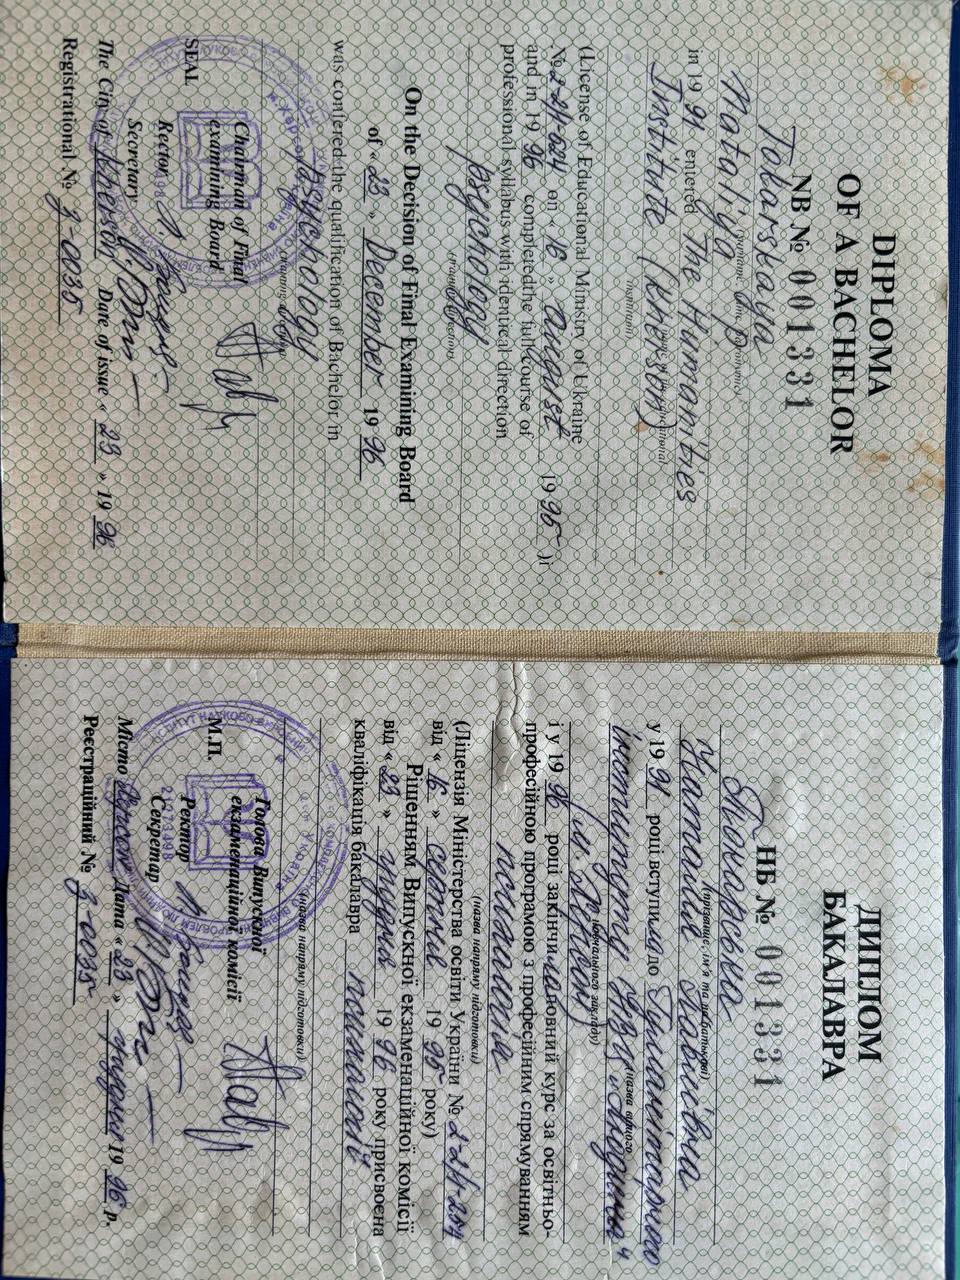 DIPLOMA
OF A BACHELOR
NB № 001331
Tokarskaya
Nataliya P.
in 19 91 entered The Humanities
Institute (Kherson)
(License of Educational Ministry of Ukraine
on « 16 » august 19 95 )i
and in 19 96 completed the full course of
professional syllabus with identical direction
psychology
On the Decision of Final Examining Board
of « 23 » December 19 96
was conferred the qualification of Bachelor in
psychology
Chairman of Final
examining Board
SEAL
Rector
Secretary
The City of Kherson Date of issue « 23 » 19 96
Registrational № 3-0035
ДИПЛОМ
БАКАЛАВРА
НБ № 001331
Токарська
Наталія Павлівна
(прізвище, ім'я та по батькові)
у 19 91 році вступила до Гуманітарного
інституту
(м. Херсон)
навчального закладу)
і у 19 96 році закінчила повний курс за освітньо-
професійною програмою з професійним спрямуванням
психологія
(назва напряму підготовки)
(Ліцензія Міністерства освіти України №
від « 16 » серпня 19 95 року)
Рішенням Випускної екзаменаційної комісії
від « 23 » грудня 19 96 року присвоєна
кваліфікація бакалавра психології
(назва напряму підготовки)
Голова Випускної
екзаменаційної комісії
М.П.
Ректор
Секретар
Місто Херсон Дата « 23 » грудня 19 96 р.
Реєстраційний № 3-0035